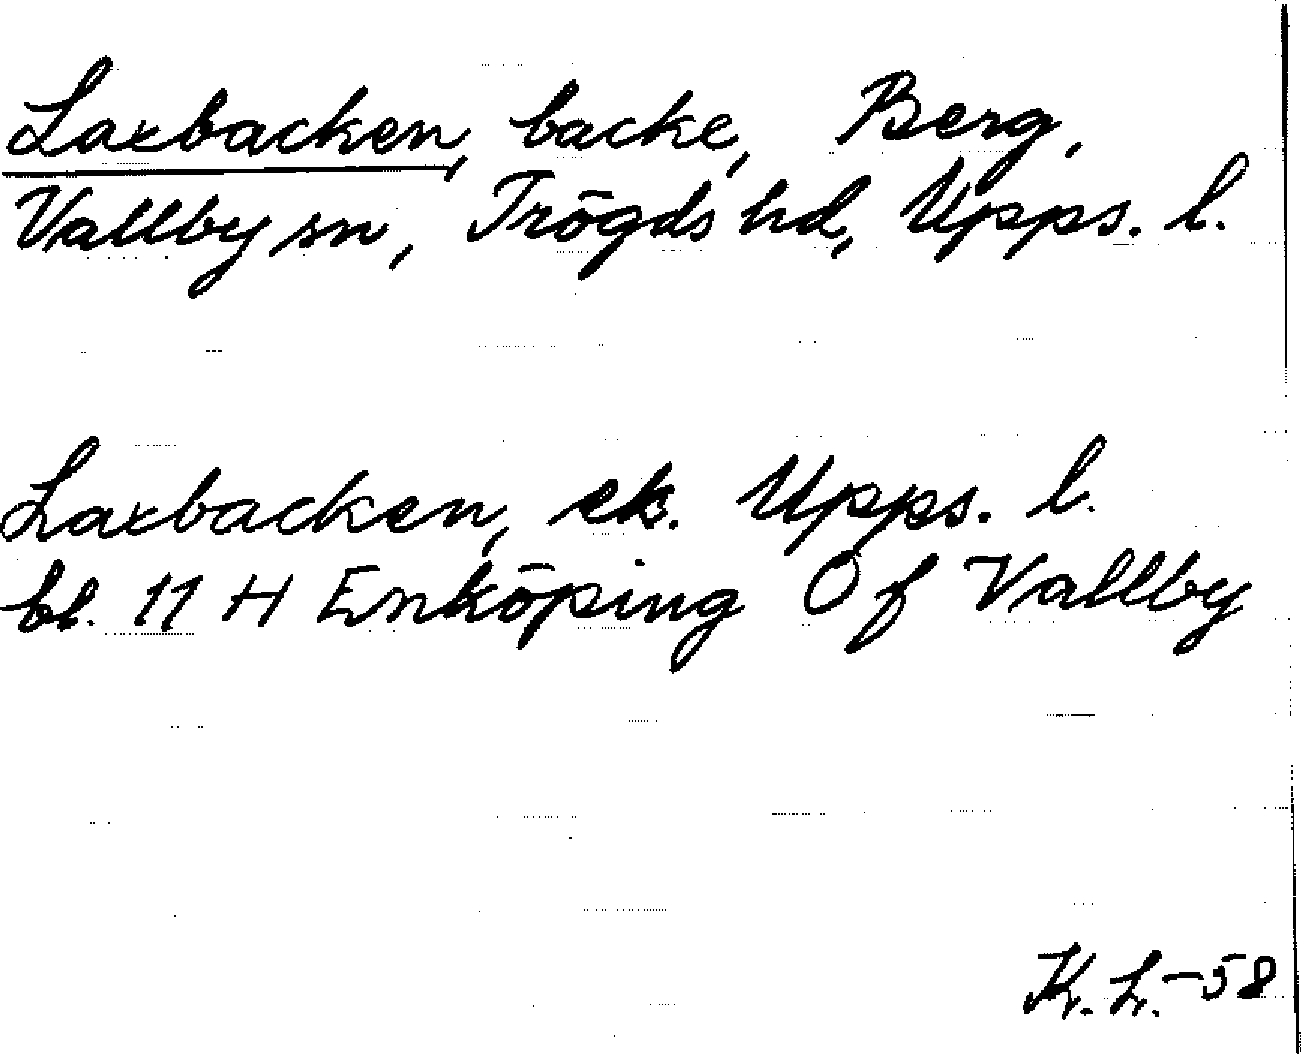 Laxbacken, backe, Berg,
Vallby sn, Trögds hd, Upps. l.
Laxbacken, ek. Upps. l.
bl. 11 H Enköping Of Vallby
K. L. -58